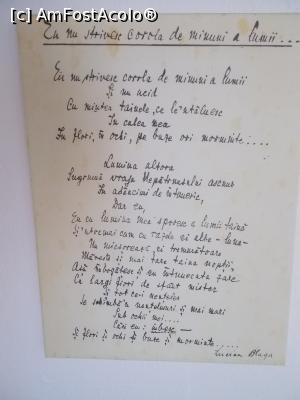 (c) AmFostAcolo®
Eu nu strivesc corola de minuni a lumii....
Eu nu strivesc corola de minuni a lumii
Și nu ucid
Cu mintea tainele, ce le'ntâlnesc
In calea mea
In flori, în ochi, pe buze ori morminte....
Lumina altora
Sugrumă vraja nepătrunsului ascuns
In adâncimi de întuneric,
Dar eu,
Eu cu lumina mea sporesc a lumii taină
Și'ntocmai cum cu raze ei albe - luna
Nu micșorează, ci tremurătoare
Mărește și mai tare taina nopții,
Așă îmbogățesc și eu întunecata zare
Cu largi fiori de sfânt mister
Și tot ce-i neînțeles
Se schimbă'n neînțelesuri și mai mari
Sub ochii mei....
Căci eu: iubesc —
Și flori și ochi și buze și morminte....
Lucian Blaga